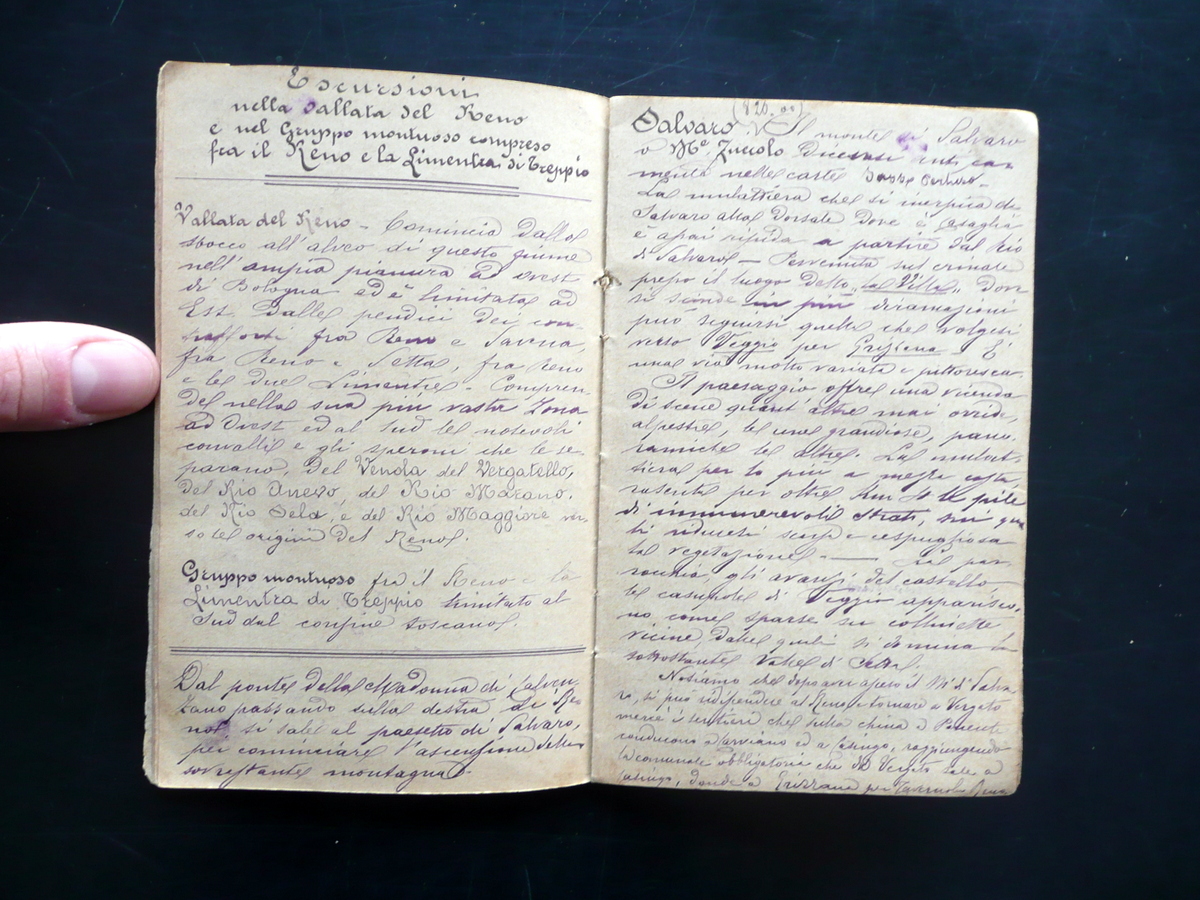 Escursioni
nella vallata del Reno
e nel Gruppo montuoso compreso
fra il Reno e la Limentra di Treppio
Vallata del Reno – Comincia dallo
sbocco all'alveo di questo fiume
nell'ampia pianura ad ovest
di Bologna ed è limitata ad
Est dalle pendici dei con-
trafforti fra Reno e Savena,
fra Reno e Setta, fra Reno
e le due Limentre – Compren
de nella sua più vasta zona
ad Ovest ed al Sud le notevoli
convalli e gli speroni che le se-
parano, del Venola del Vergatello,
del Rio Aneva, del Rio Marano,
del Rio Sela, e del Rio Maggiore ver
so le origini del Reno.
Gruppo montuoso fra il Reno e la
Limentra di Treppio limitato al
Sud dal confine toscano.
Dal ponte della Madonna di Calven-
zano passando sulla destra di Re
no, si sale al paesetto di Salvaro,
per cominciare l'ascensione della
sovrastante montagna
(826,00)
Salvaro. Il monte di Salvaro
o Me. Zuccolo dicesi anti ca-
mente nelle carte
La mulattiera che si inerpica da
Salvaro alla dorsale dove è Casaglia
è assai ripida a partire dal Rio
di Salvaro – Pervenuta sul crinale
presso il luogo detto "la Villa", dove
si scinde in più diramazioni
può seguirsi quella che volgesi
verso Veggio per Grizzana – È
una via molto variata e pittoresca.
Il paesaggio offre una vicenda
di scene quant'altre mai orride,
alpestri, le une grandiose, pano-
ramiche le altre. La mulat-
tiera per lo più a mezza costa,
rasenta per oltre km 4 le pile
di innumerevoli strati, sui qua
li riducesi scarsa e cespugliosa
la vegetazione – La par
rocchia, gli avanzi del castello
le casupole di Veggio apparisco-
no come sparse su collinette
vicine dalle quali si domina la
sottostante Valle di Setta.
Notiamo che dopo aver asceso il M. di Salva-
ro, si può ridiscendere al Reno e tornare a Vergato
mercè i sentieri che sulla china a Ponente
conducono a ed a , raggiungendo
la comunale obbligatoria che da Vergato sale a
donde a Grizzana per